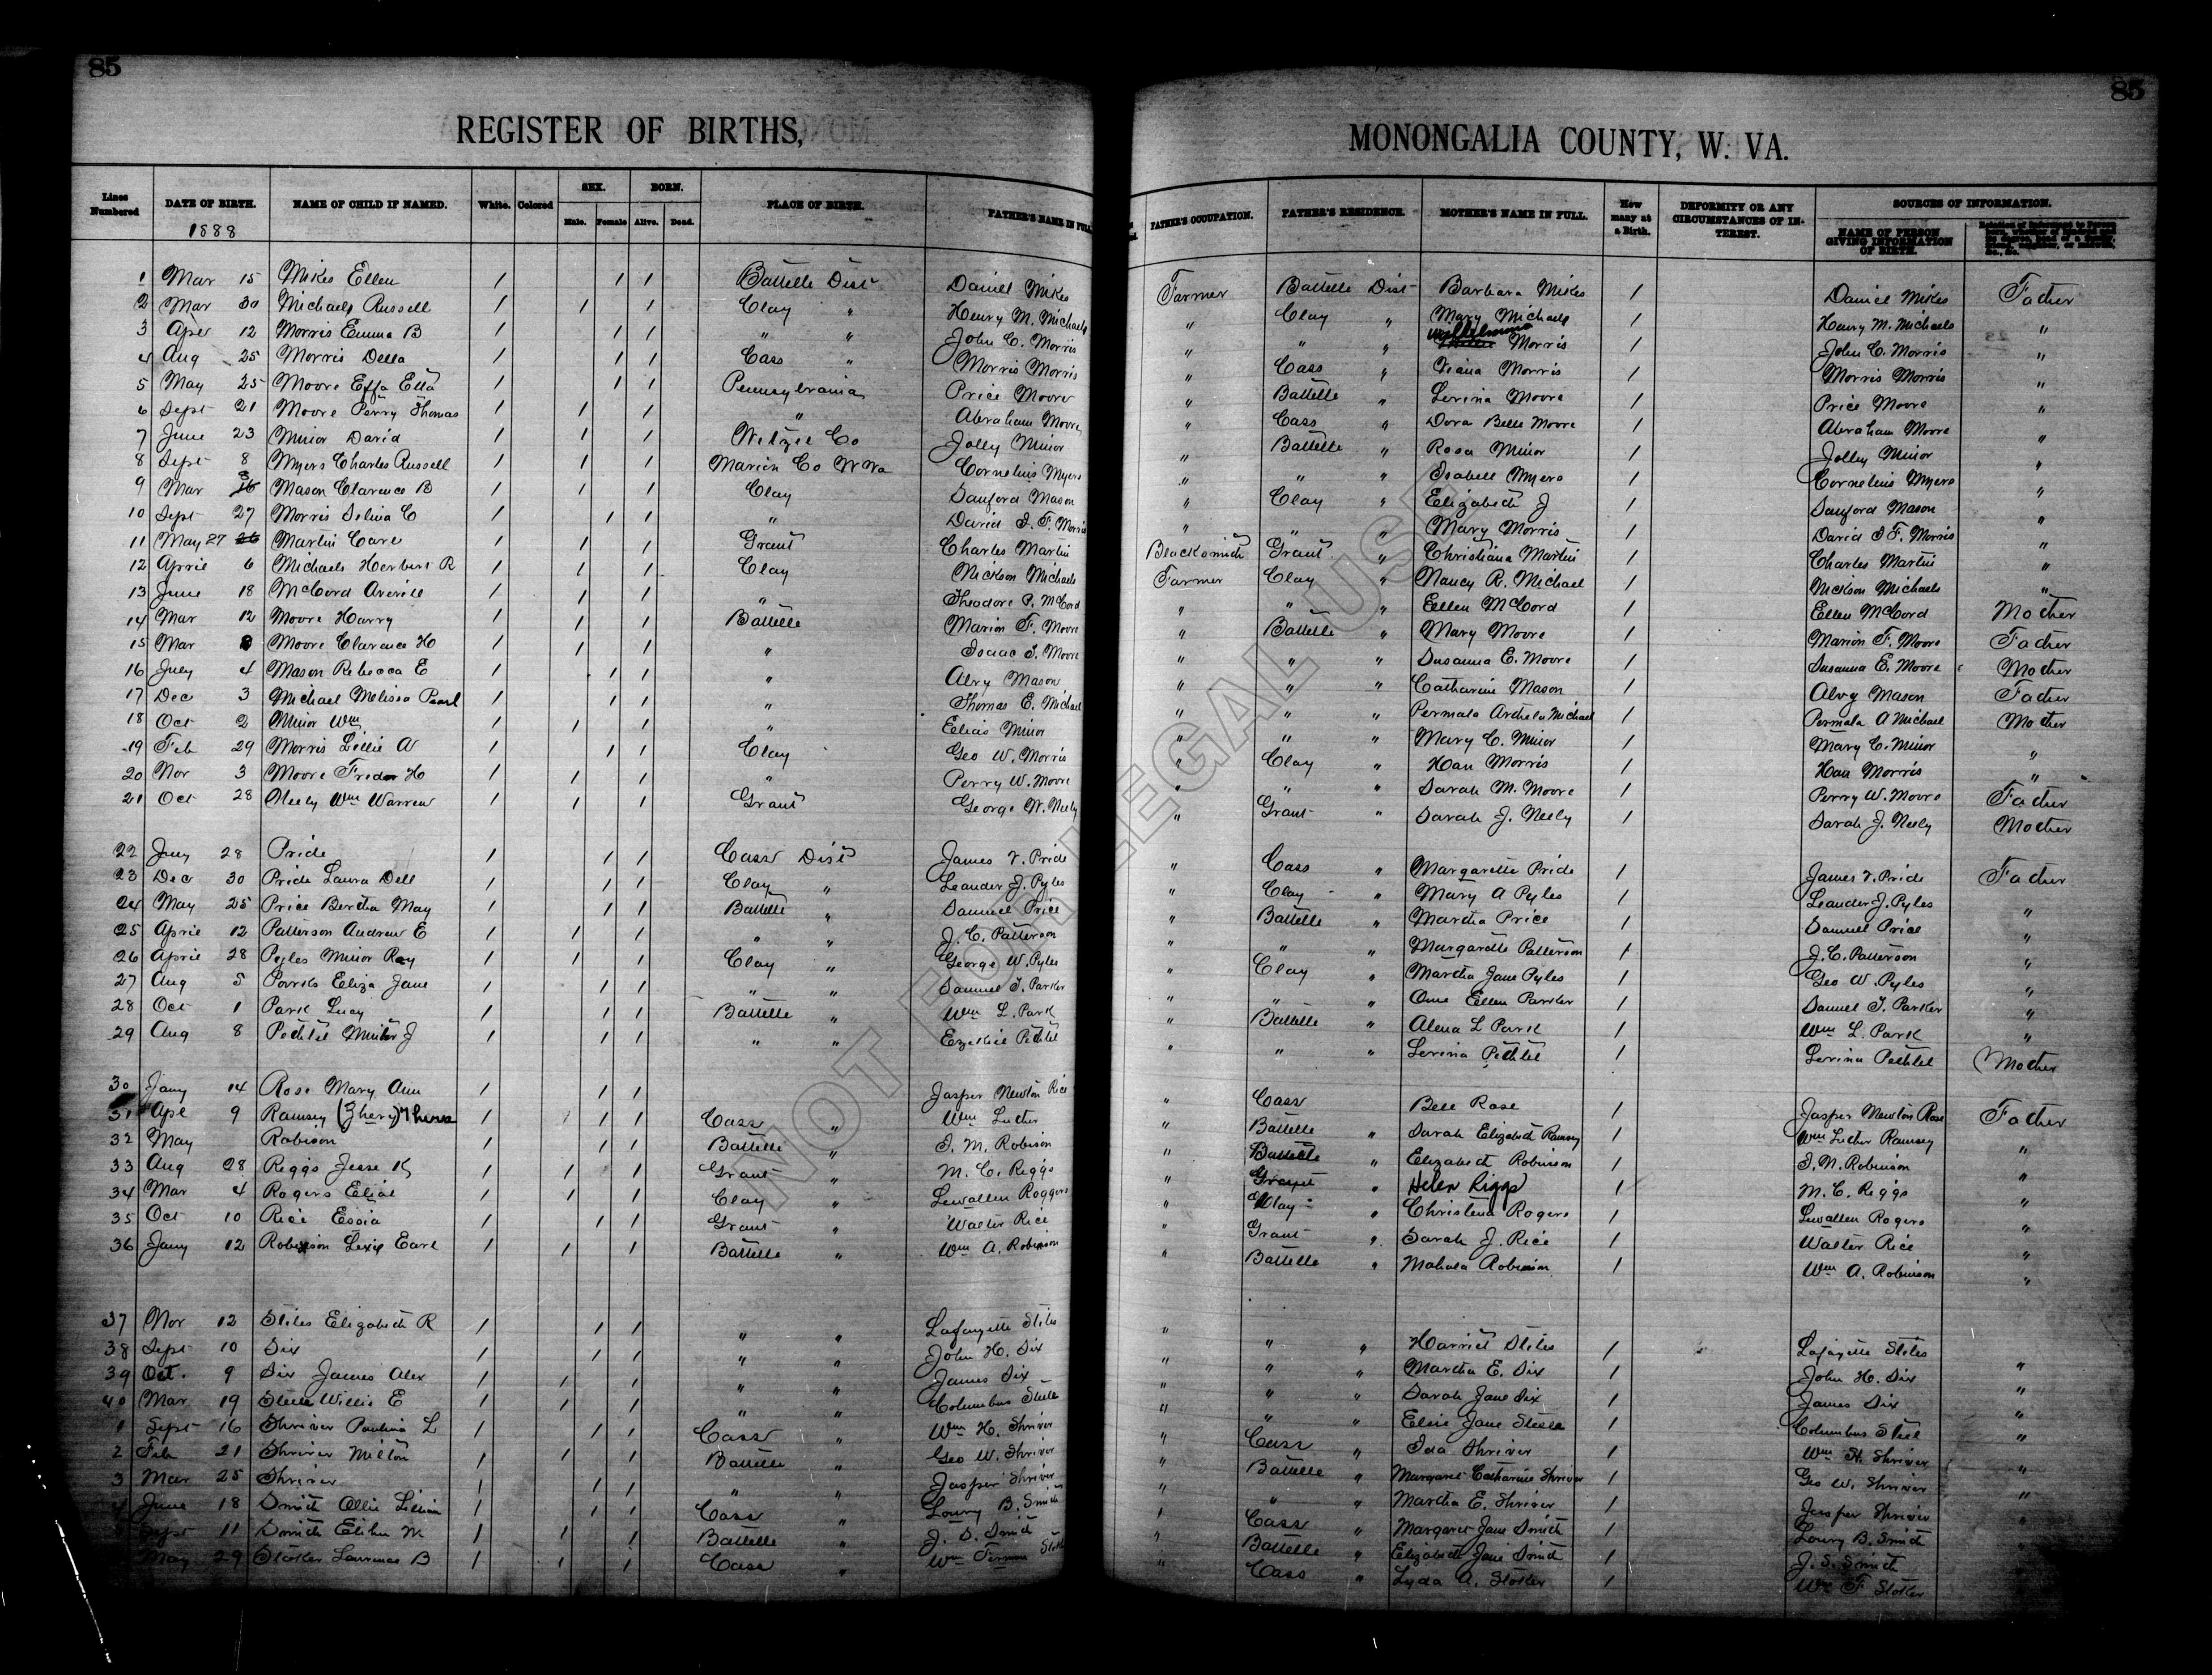 85
85
REGISTER OF BIRTHS,
MONONGALIA COUNTY, W. VA.
Lines Numbered
DATE OF BIRTH. 1888
NAME OF CHILD IF NAMED.
White. Colored
SEX. Male. Female
BORN. Alive. Dead.
PLACE OF BIRTH.
FATHER'S NAME IN FULL
FATHER'S OCCUPATION.
FATHER'S RESIDENCE.
MOTHER'S NAME IN FULL.
How many at a Birth.
DEFORMITY OR ANY CIRCUMSTANCES OF INTEREST.
SOURCES OF INFORMATION.
NAME OF PERSON GIVING INFORMATION OF BIRTH.
1 Mar 15 Mikes Ellen 1 1 1 Battelle Dist Daniel Mikes Farmer Battelle Dist Barbara Mikes 1 Daniel Mikes Father
2 Mar 30 Michaels Russell 1 1 1 Clay " Henry M. Michaels " Clay " Mary Michaels 1 Henry M. Michaels "
3 Aper 12 Morris Emma B 1 1 1 " " John C. Morris " " " Morris 1 John C. Morris "
4 Aug 25 Morris Della 1 1 1 Cass " Morris Morris " Cass " Morris 1 Morris Morris "
5 May 25 Moore Effa Etta 1 1 1 Pennsylvania Price Moore " Battelle " Levina Moore 1 Price Moore "
6 Sept 21 Moore Perry Thomas 1 1 1 " Abraham Moore " Cass " Dora Belle Moore 1 Abraham Moore "
7 June 23 Minor David 1 1 1 Wetzel Co Jolly Minor " Battelle " Rosa Minor 1 Jolley Minor "
8 Sept 8 Myers Charles Russell 1 1 1 Marion Co W Va Cornelius Myers " " " Isabell Myers 1 Cornelius Myers "
9 Mar 3 Mason Clarence B 1 1 1 Clay Sanford Mason " Clay " Elizabeth J 1 Sanford Mason "
10 Sept 27 Morris Selina C 1 1 1 " David I. F. Morris " " " Mary Morris 1 David I F. Morris "
11 May 27 Martin Carl 1 1 1 Grant Charles Martin Blacksmith Grant " Christiana Martin 1 Charles Martin "
12 April 6 Michaels Herbert R 1 1 1 Clay Nickson Michaels Farmer Clay " Nancy R. Michael 1 Nickson Michaels "
13 June 18 McCord Averill 1 1 1 " Theadore P. McCord " " " Ellen McCord 1 Ellen McCord Mother
14 Mar 12 Moore Harry 1 1 1 Battelle Marion F. Moore " Battelle " Mary Moore 1 Marion F. Moore Father
15 Mar Moore Clarence H 1 1 1 " Isaac S. Moore " " " Susanna E. Moore 1 Susanna E. Moore Mother
16 July 4 Mason Rebecca E 1 1 1 " Alvy Mason " " " Catharine Mason 1 Alvy Mason Father
17 Dec 3 Michael Melissa Pearl 1 1 1 " Thomas E. Michael " " " Permala Michael 1 Permala A Michael Mother
18 Oct 2 Minor Wm 1 1 1 " Elias Minor " " " Mary C. Minor 1 Mary C. Minor "
19 Feb 29 Morris Lillie A 1 1 1 Clay Geo W. Morris " Clay " Han Morris 1 Han Morris "
20 Nov 3 Moore H 1 1 1 " Perry W. Moore " " " Sarah M. Moore 1 Perry W. Moore Father
21 Oct 28 Neely Wm Warren 1 1 1 Grant George W. Neely " Grant " Sarah J. Neely 1 Sarah J. Neely Mother
22 July 28 Pride 1 1 1 Cass Dist James V. Pride " Cass " Margarette Pride 1 James V. Pride Father
23 Dec 30 Pride Laura Dell 1 1 1 Clay " Leander J. Pyles " Clay " Mary A Pyles 1 Leander J. Pyles "
24 May 25 Price Bertha May 1 1 1 Battelle " Samuel Price " Battelle " Martha Price 1 Samuel Price "
25 April 12 Patterson Andrew E 1 1 1 " " J. C. Patterson " " " Margarette Patterson 1 J. C. Patterson "
26 April 28 Pyles Minor Ray 1 1 1 Clay " George W. Pyles " Clay " Martha Jane Pyles 1 Geo W. Pyles "
27 Aug 5 Parks Eliza Jane 1 1 1 " " Samuel T. Parker " " " Ellen Parker 1 Samuel T. Parker "
28 Oct 1 Park Lucy 1 1 1 Battelle " Wm L. Park " Battelle " Alena L Park 1 Wm L. Park "
29 Aug 8 Pethtel J 1 1 1 " " Ezekiel Pethtel " " " Levina Pethtel 1 Levina Pethtel Mother
30 Jany 14 Rose Mary Ann 1 1 1 Jasper Newton Rice " Cass Bell Rose 1 Jasper Newton Rose Father
31 Apl 9 Ramsey 1 1 1 Cass " Wm Luther " Battelle " Sarah Elizabeth Ramsey 1 Wm Luther Ramsey "
32 May Robison 1 1 1 Battelle " I. M. Robison " Battelle " Elizabeth Robinson 1 I. M. Robinson "
33 Aug 28 Riggs Jesse K 1 1 1 Grant " M. C. Riggs " Grant " Helen Riggs 1 M. C. Riggs "
34 Mar 4 Rogers Elial 1 1 1 Clay " Lewallen Roggers " Clay " Christena Rogers 1 Lewallen Rogers "
35 Oct 10 Rice Essia 1 1 1 Grant " Walter Rice " Grant " Sarah J. Rice 1 Walter Rice "
36 Jany 12 Robinson Earl 1 1 1 Battelle " Wm A. Robinson " Battelle " Mahala Robinson 1 Wm A. Robinson "
37 Nov 12 Stiles Elizabeth R 1 1 1 " " Lafayette Stiles " " " Harriet Stiles 1 Lafayette Stiles
38 Sept 10 Six 1 1 1 " " John H. Six " " " Martha E. Six 1 John H. Six "
39 Oct. 9 Six James Alex 1 1 1 " " James Six " " " Sarah Jane Six 1 James Six "
40 Mar 19 Steele Willie E 1 1 1 " " Columbus Steele " " " Elsie Jane Steele 1 Columbus Steel "
1 Sept 16 Shriver Paulina L 1 1 1 Cass " Wm H. Shriver " Cass " Ida Shriver 1 Wm H. Shriver "
2 Feb 21 Shriver Milton 1 1 1 Battelle " Geo W. Shriver " Battelle " Margaret Catharine Shriver 1 Geo W. Shriver "
3 Mar 25 Shriver 1 1 1 " " Jasper Shriver " " " Martha E. Shriver 1 Jasper Shriver "
4 June 18 Smith Ollie Lillian 1 1 1 Cass " Loury B. Smith " Cass " Margaret Jane Smith 1 Loury B. Smith
Sept 11 Smith Elihu M 1 1 1 Battelle " J. S. Smith " Battelle " Elizabeth Jane Smith 1 J. S. Smith
May 29 Stotler Laurence B 1 1 1 Cass " Wm " Cass " Lyda A. Stotler 1 Wm F Stotler
NOT FOR LEGAL USE